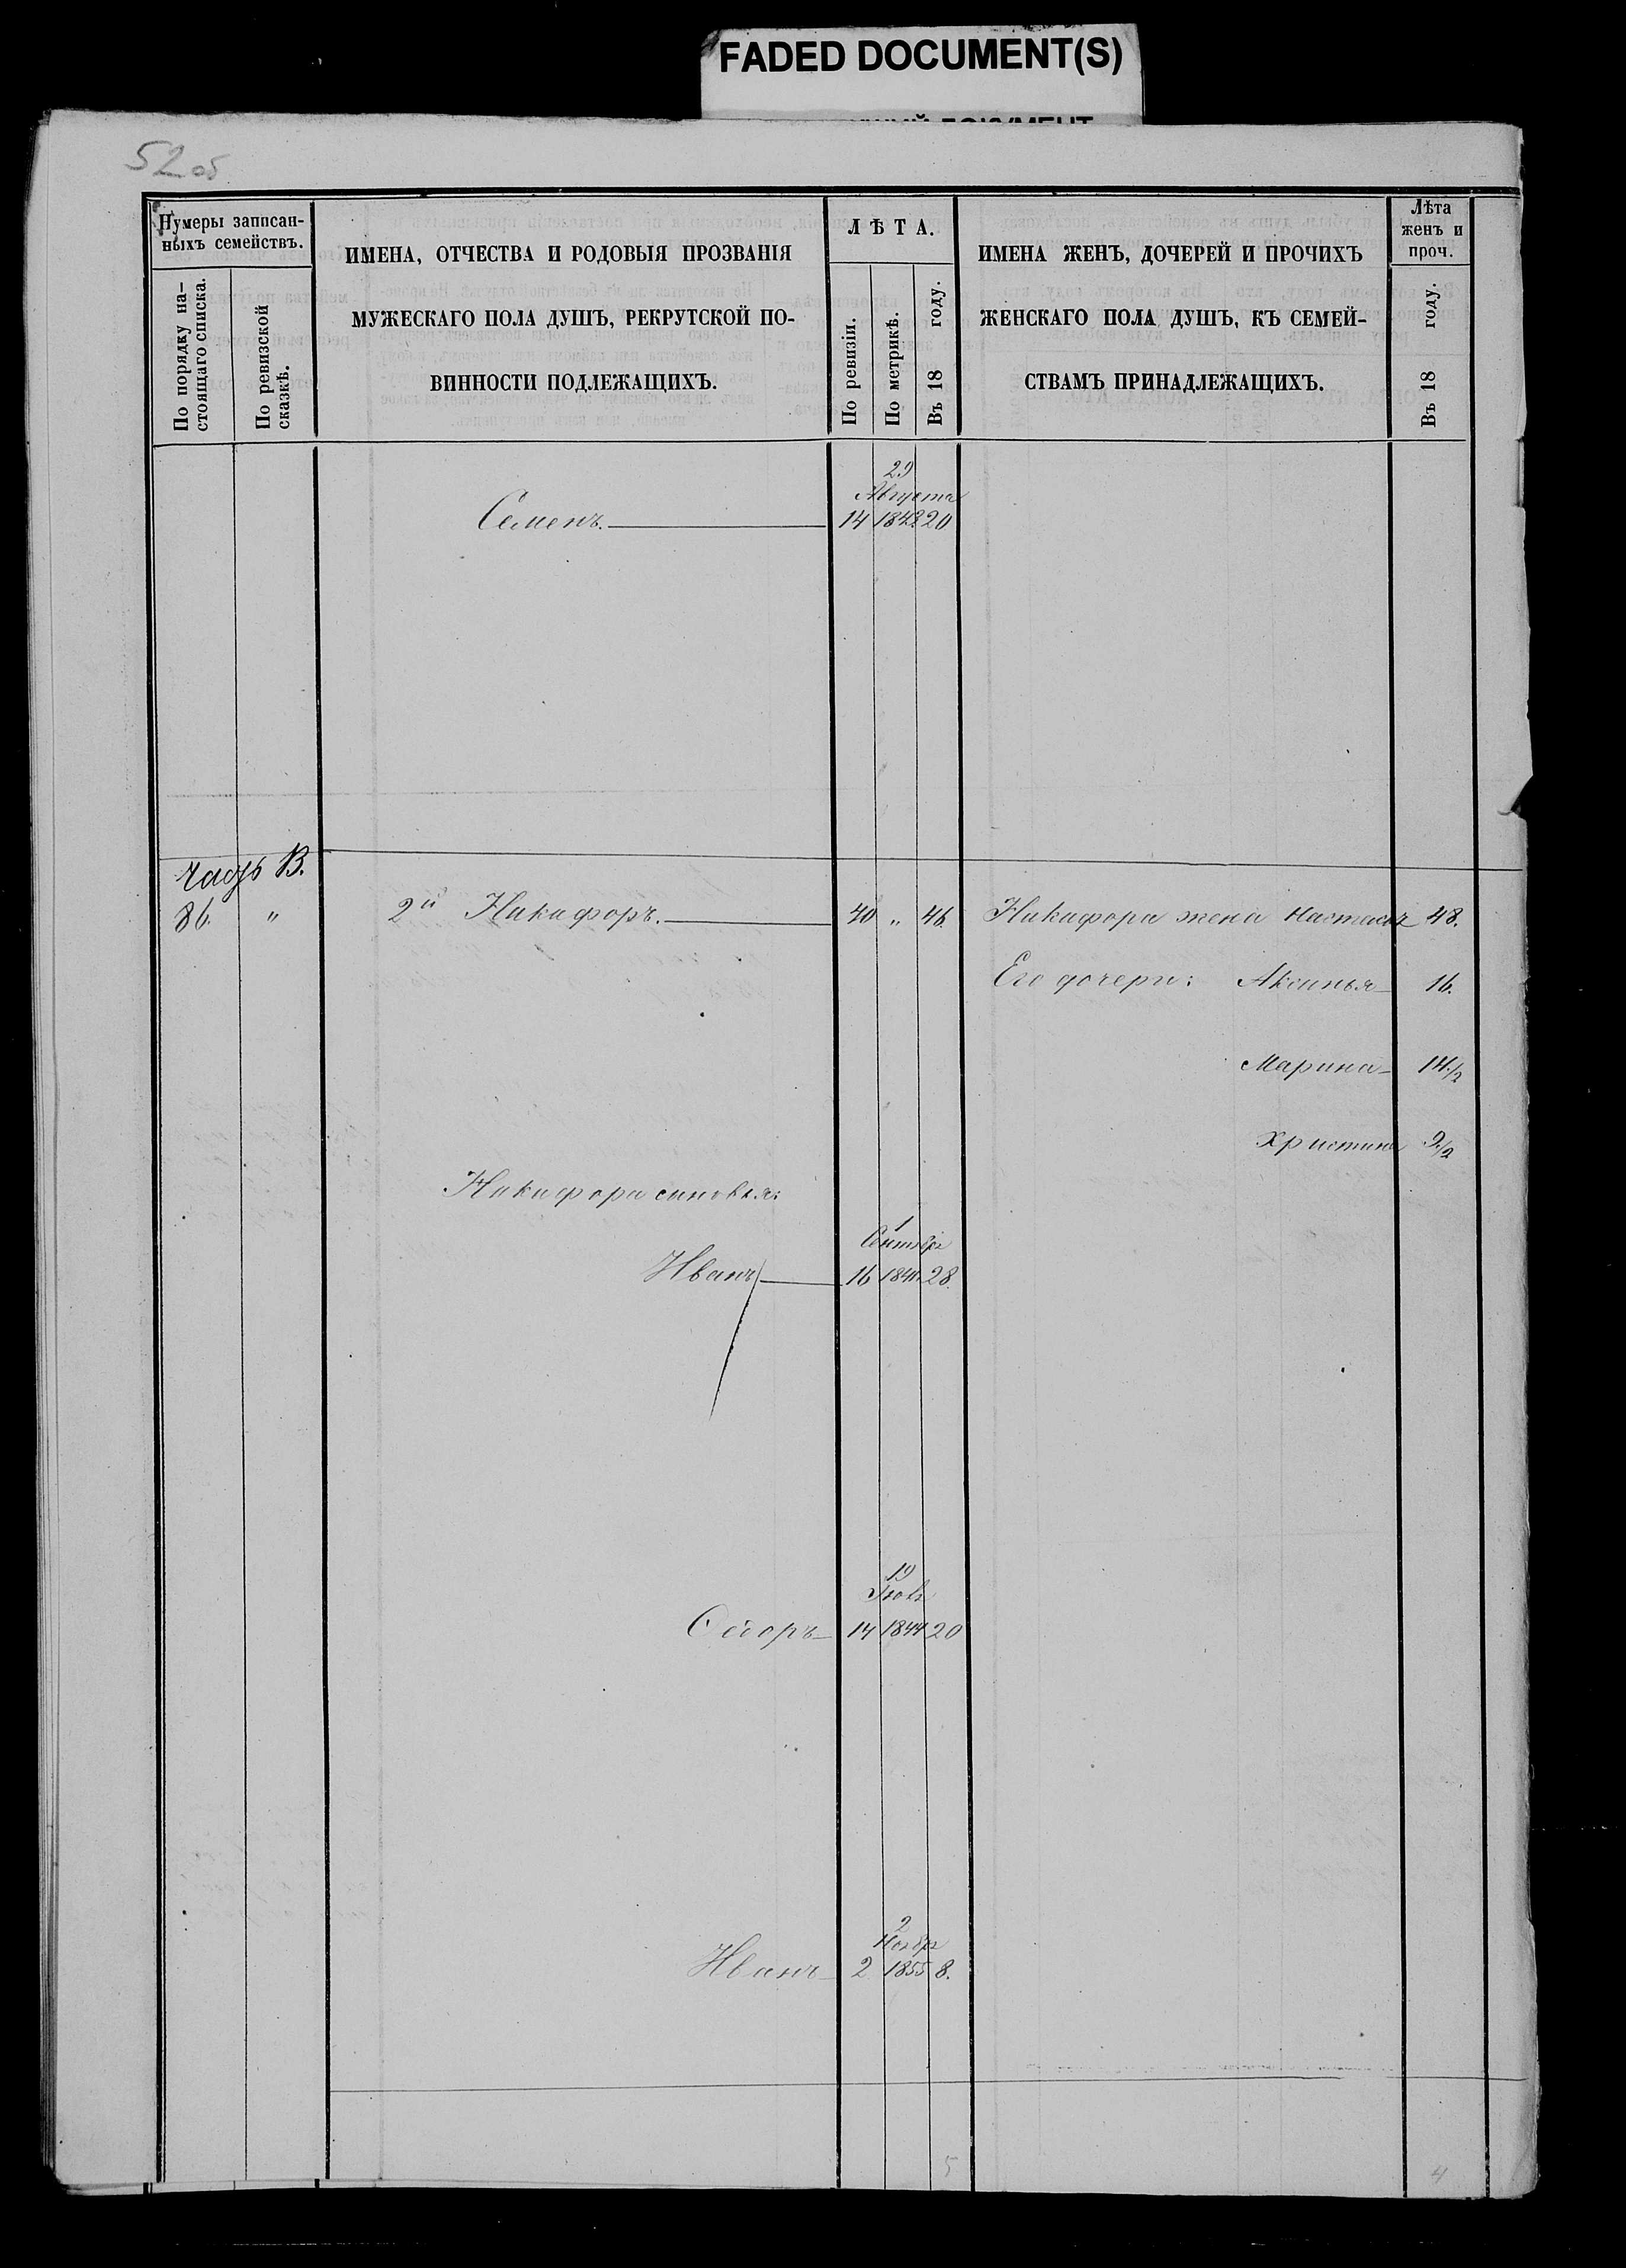 FADED DOCUMENT(S)
52 об
Нумеры записан-
ныхъ семействъ.
По порядку на-
стоящаго списка.
По ревизской
сказкѣ.
ИМЕНА, ОТЧЕСТВА И РОДОВЫЯ ПРОЗВАНІЯ
МУЖЕСКАГО ПОЛА ДУШЪ, РЕКРУТСКОЙ ПО-
ВИННОСТИ ПОДЛЕЖАЩИХЪ.
ЛѢТА.
По ревизіи.
По метрикѣ.
Въ 18 году.
ИМЕНА ЖЕНЪ, ДОЧЕРЕЙ И ПРОЧИХЪ
ЖЕНСКАГО ПОЛА ДУШЪ, КЪ СЕМЕЙ-
СТВАМЪ ПРИНАДЛЕЖАЩИХЪ.
Лѣта
женъ и
проч.
Въ 18 году.
29
Августа
Семенъ. 14 1843. 20
В.
86. " 2й Никифоръ. 40 " 46. Никифора жена Настасья 48.
Его дочери: Аксинья 16.
Марина 14 1/2
Христина 9 1/2
Никифора сыновья:
1
Сентября
Иванъ 16 28.
19
Ѳедоръ 14 1844 20
2
Ноября
Иванъ 2 1855 8.
5 4